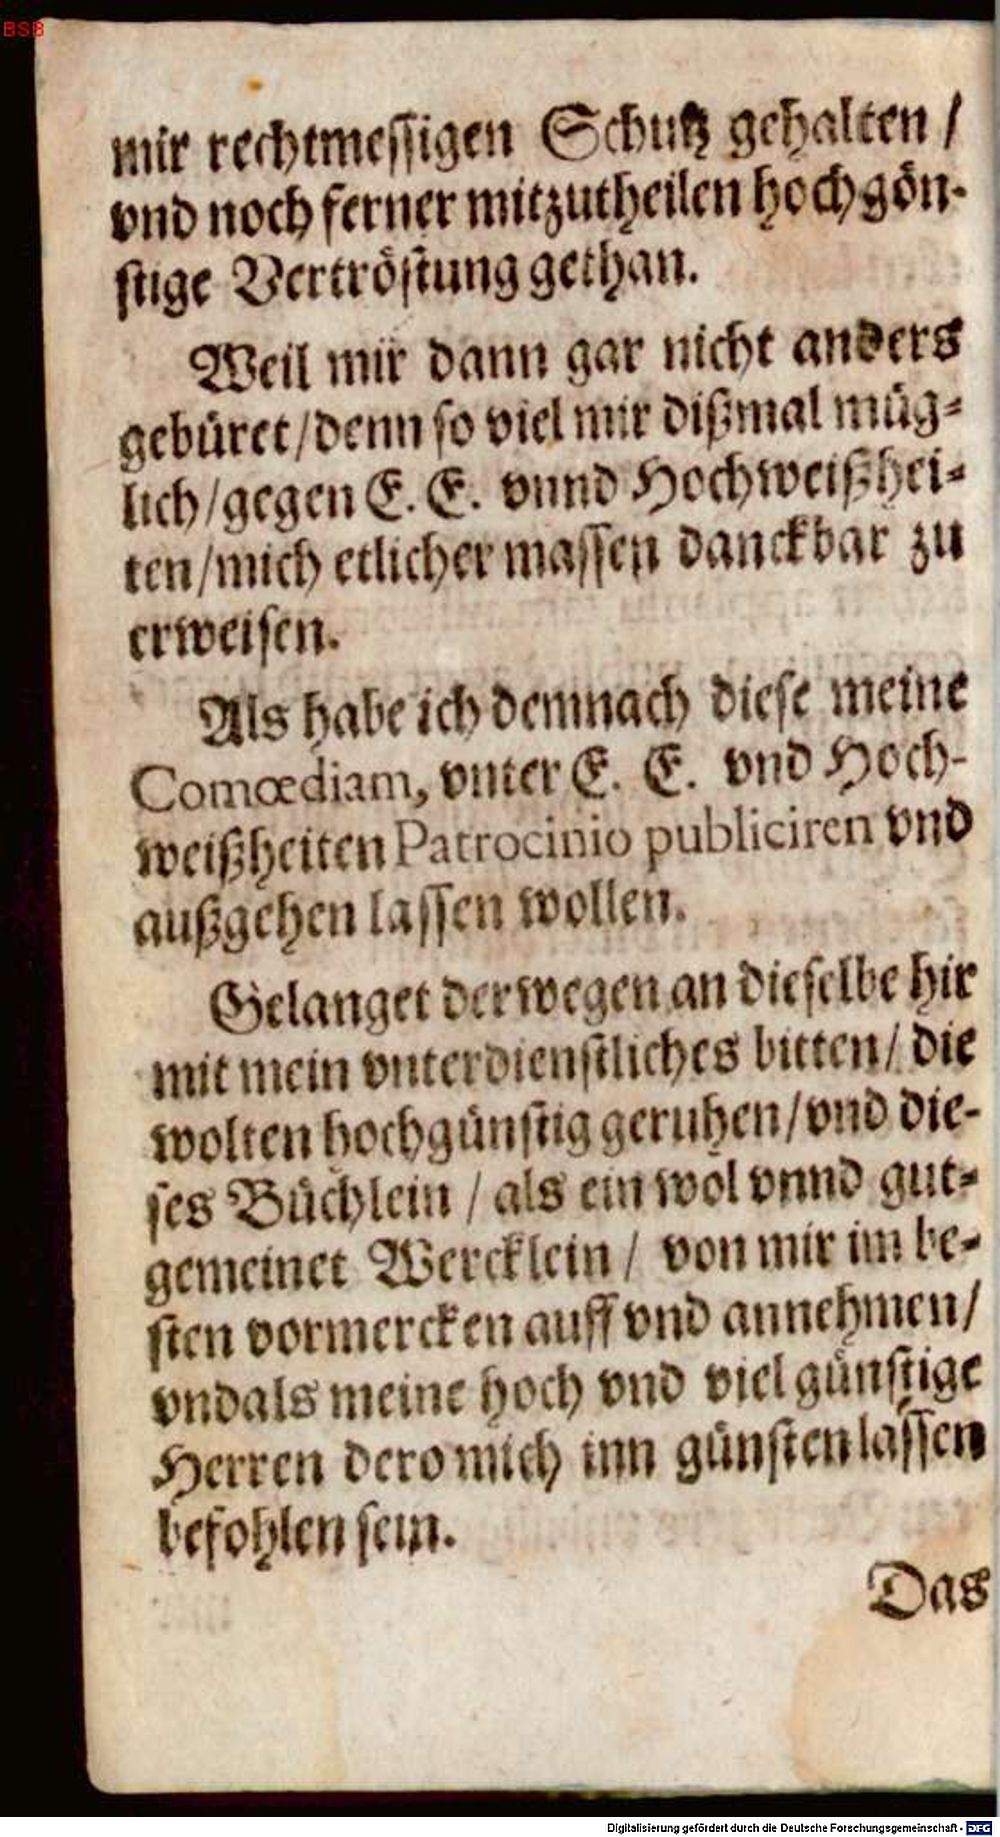 BSB
mir rechtmeſſigen Schutz gehalten /
vnd noch ferner mitzutheilen hochgön-
ſtige Vertröſtung gethan.
Weil mir dann gar nicht anders
gebüret / denn ſo viel mir dißmal müg-
lich / gegen E. E. vnnd Hochweißhei-
ten / mich etlicher maſſen danckbar zu
erweiſen.
Als habe ich demnach dieſe meine
Comœdiam, vnter E. E. vnd Hoch-
weißheiten Patrocinio publiciren vnd
außgehen laſſen wollen.
Gelanget derwegen an dieſelbe hir
mit mein vnterdienſtliches bitten / die
wolten hochgünſtig geruhen / vnd die-
ſes Büchlein / als ein wol vnnd gut-
gemeinet Wercklein / von mir im be-
ſten vormercken auff vnd annehmen /
vnd als meine hoch vnd viel günſtige
Herren dero mich inn günſten laſſen
befohlen ſein.
Das
Digitalisierung gefördert durch die Deutsche Forschungsgemeinschaft - DFG